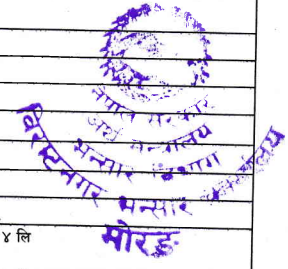 नेपाल सरकार
अर्थ मन्त्रालय
भन्सार विभाग
विराटनगर भन्सार कार्यालय
मोरङ
४ लि